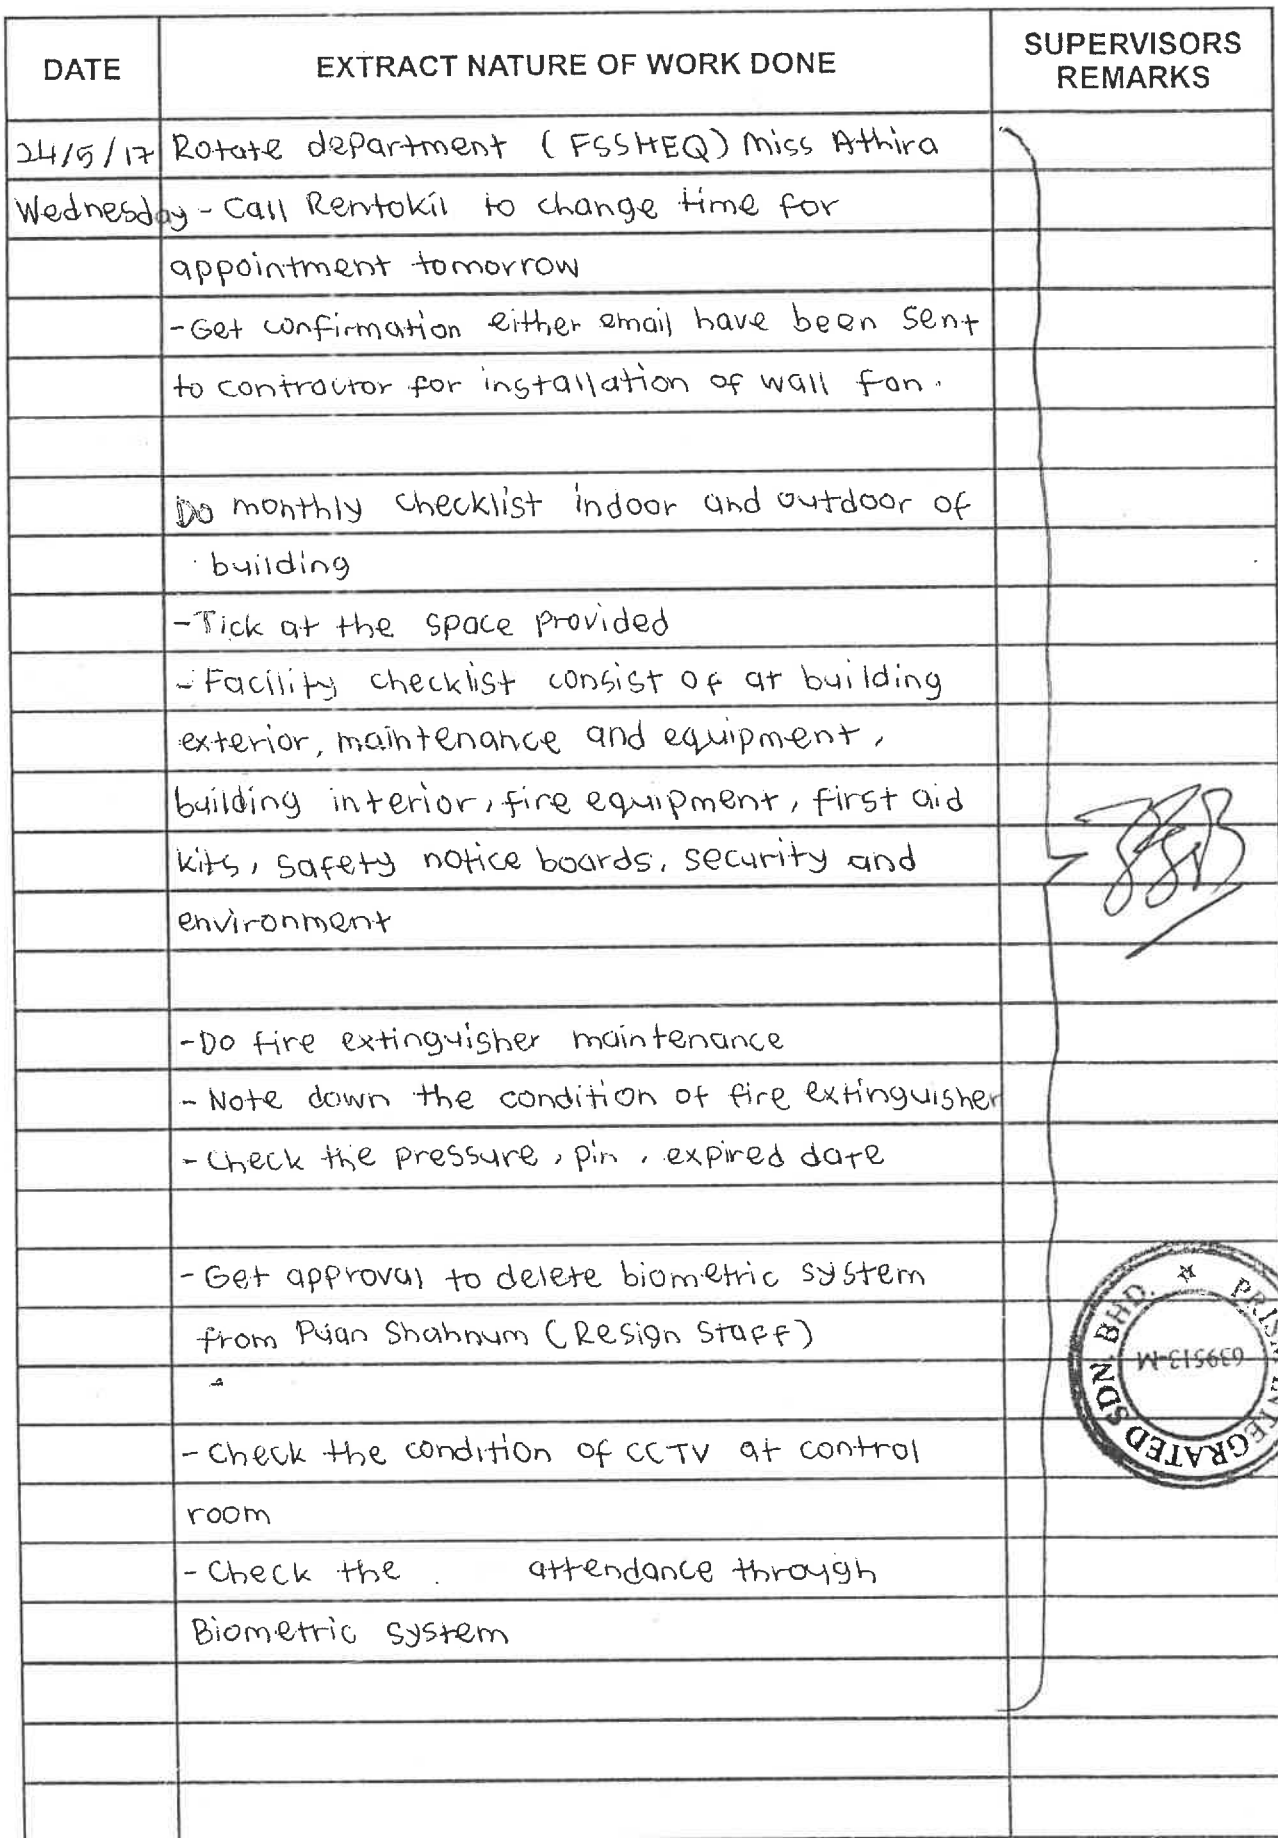 DATE EXTRACT NATURE OF WORK DONE SUPERVISORS REMARKS
24/5/17 Rotate department (FSSHEQ) Miss Athira
Wednesday - Call Rentokil to change time for
appointment tomorrow
- Get confirmation either email have been sent
to contractor for installation of wall fan.
Do monthly checklist indoor and outdoor of
building
- Tick at the space provided
- Facility checklist consist of at building
exterior, maintenance and equipment,
building interior, fire equipment, first aid
kits, safety notice boards, security and
environment
- Do fire extinguisher maintenance
- Note down the condition of fire extinguisher
- Check the pressure, pin, expired date
- Get approval to delete biometric system
from Puan Shahnum (Resign Staff)
- Check the condition of CCTV at control
room
- Check the attendance through
Biometric system
INTEGRATED SDN. BHD.
639513-M